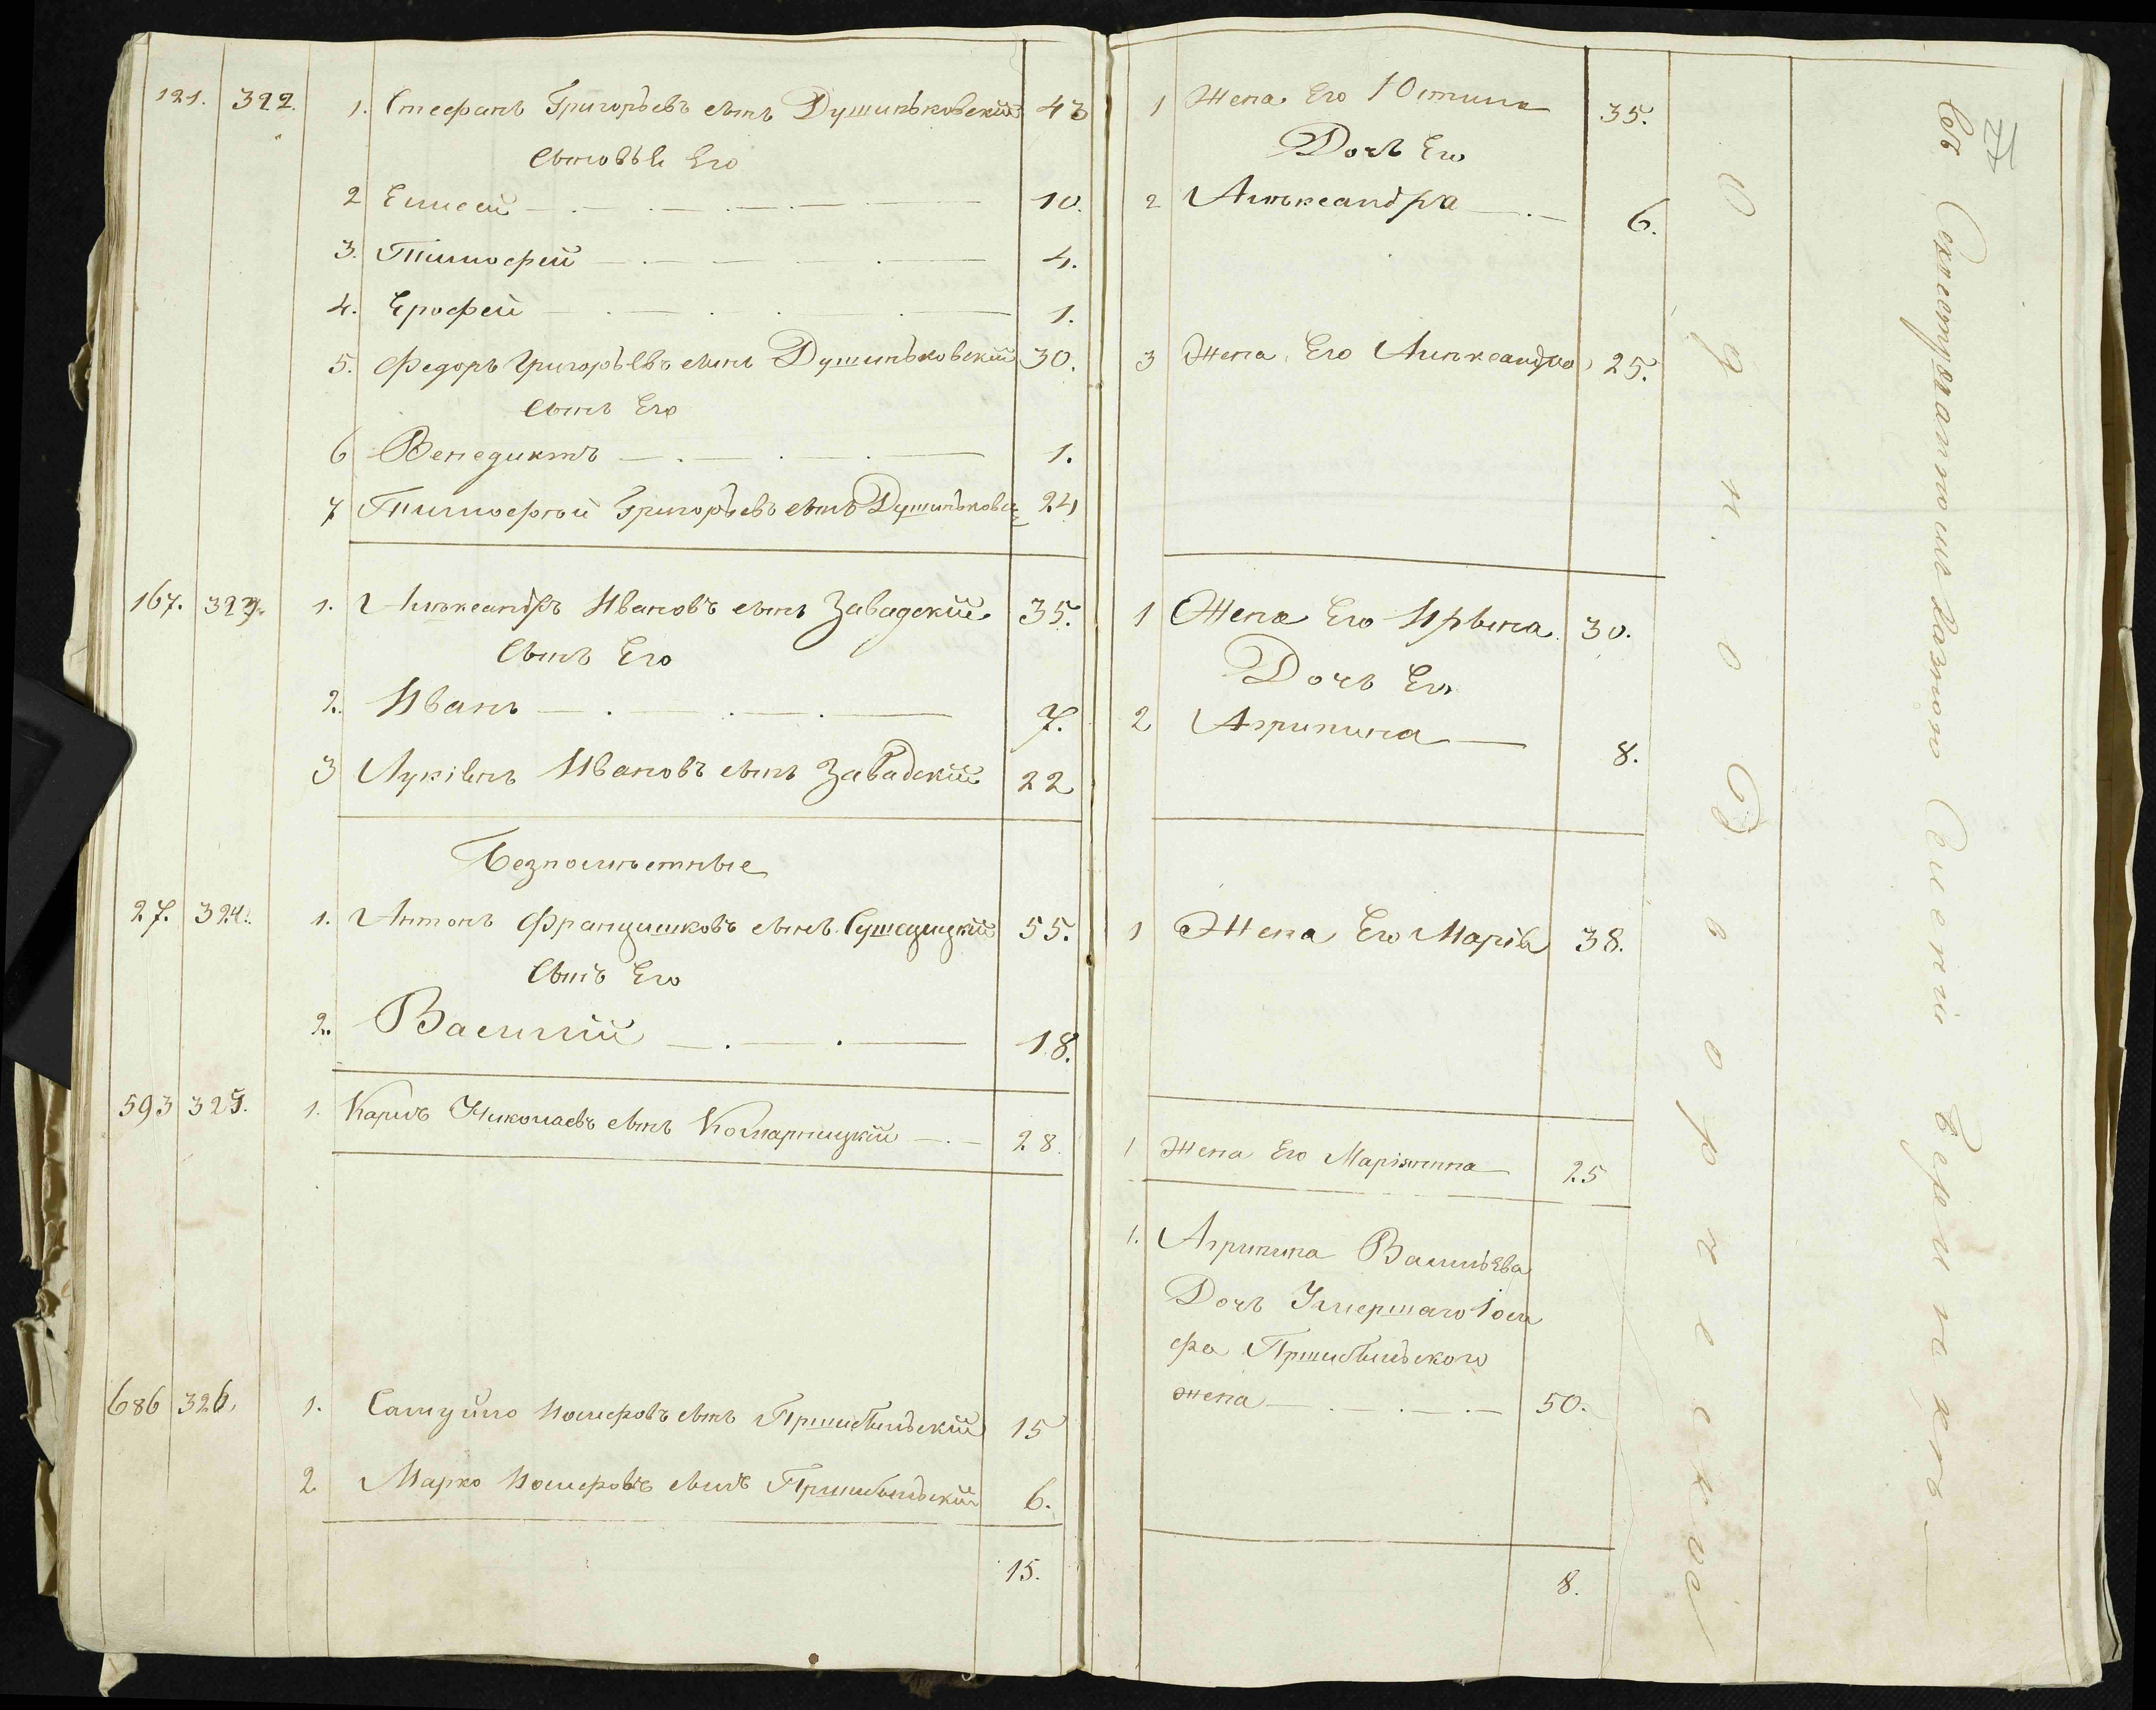 121. 322. 1. Стефанъ Григорьевъ сынъ Душиньковскій 43
Сыновья Его
2 Елисей 10.
3. Тимофей 4.
4. Ерофей 1.
5. Федоръ Григорьевъ сынъ Душиньковскій 30.
Сынъ Его
6 Венедиктъ 1.
7 Тимофей Григорьевъ сынъ 24
167. 323. 1. Александръ Ивановъ сынъ Завадскій 35.
Сынъ Его
2. Иванъ 7.
3 Лукіянъ Ивановъ сынъ Завадскій 22
Безпомѣстные
27. 324. 1. Антонъ Францишковъ сынъ 55.
Сынъ Его
2. Василій 18.
593 325. 1. Карлъ Николаевъ сынъ Комарницкій 28.
686 326. 1. Самуйло Иосифовъ сынъ Пршибыльскій 15
2 Марко Иосифовъ сынъ Пршибыльскій 6.
15.
1 Жена Его Юстина 35.
Дочь Его
2 Александра 6.
3 Жена Его Александра 25.
1 Жена Его Ирына 30.
Дочь Его
2 Агрипина 8.
1 Жена Его Марія 38.
1 Жена Его Маріянна 25
1. Агрипина Васильева
Дочь Умершаго Іоси
фа Пршибыльского
жена 50.
8.
одноД
77